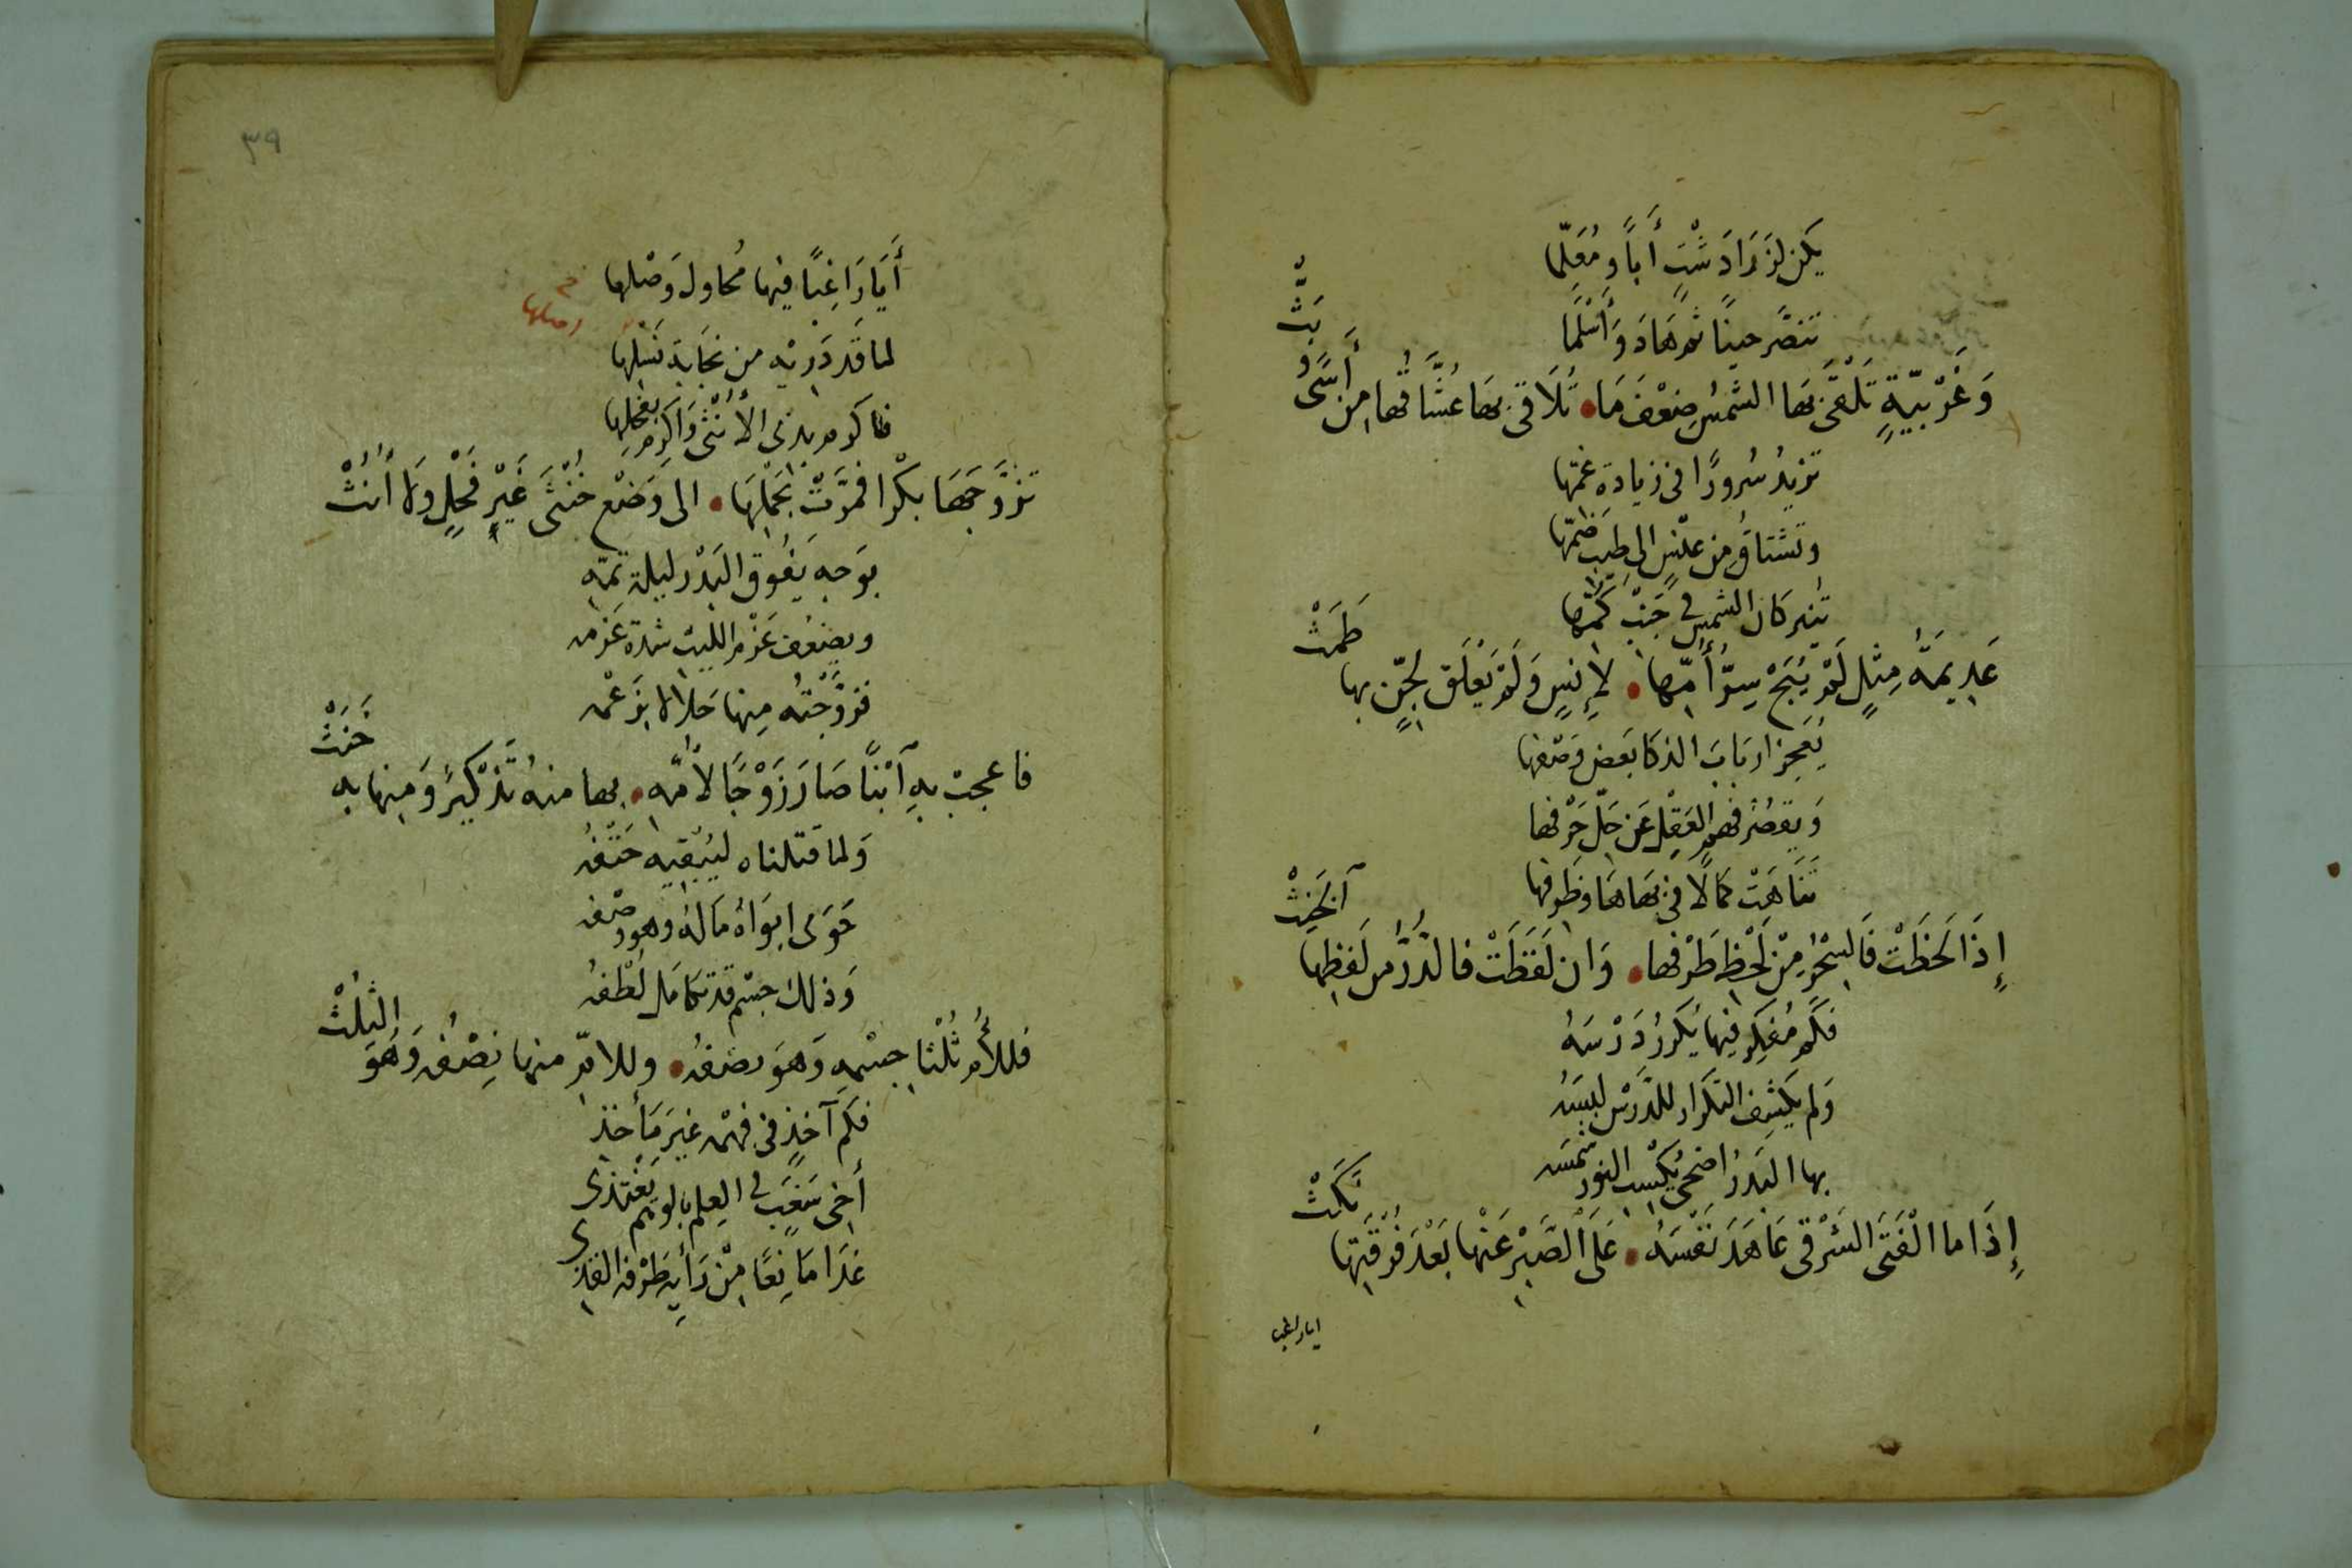 يَكن لزَرَادَشْتٍ أَبًا ومُعَلِّما
تنصَّر حينًا ثم هَادَ وَأَسْلَمَا
وَغَرْبيّةٍ تَلْقَى بهَا الشمسُ ضِعْفَ مَا • تُلَاقى بهَا عُشَّاقُها مِن أَسًى وَبَثّْ
تزيدُ سُرورًا فى زيادة غمّها
وتشتاقُ مِن عنّين الى طيب ضمّها
تُنير كان الشمس فى جَنْب كُمّها
عَدِيمَةُ مِثْلٍ لَمْ يُبَحْ سِرُّ أُمّها • لإِنسٍ وَلَمْ يَعْلَق لجِنٍّ بها طَمَثْ
يُعجِز ارباب الذكا بعض وَصْفها
وَيقصُر فهم العَقْلِ عَن حَلّ حَرْفها
تَنَاهَتْ كمالًا فى بهَاهَا وظَرفها
إِذَا لَحَظَتْ فَالسِّحْرُ مِنْ لَحْظِ طَرْفها • وَان لَفَظَتْ فالدُّرُّ من لَفظِها
فكَم مُفكِرٍ فيها يُكَرّرُ دَرْسَهُ
وَلم يكشِف التكرار للدَّرْسِ لبسَهُ
بها البَدرُ اضحى يُكْسِب النورَ شمسَه
إِذَا ما الْفَتَى الشرْقى عَاهَدَ نَفْسَهُ • عَلَى الصَّبْرِ عَنْها بَعْدَ فُرْقَتِها نَكَثْ
ايا راغبا
٣٩
أَيَا رَاغِبًا فيها مُحاول وَصْلها
اصلها
لما قَد دَرَيْه من نجَابة نَسْلها
فاكرم بذى الأُنْثى وَاكرِم بفحلها
تزوَّجَهَا بكْرا فمرَّتْ بحَمْلِهَا • الى وَضْع خُنْثَى غَيْرِ فَحْلٍ ولَا أُنُثْ
بوَجهٍ يَفُوق البَدْر ليلة تمّه
ويضعُف عَزْم الليث شدة عَزمه
فزوَّجتُه مِنها حَلالا بزَعْمه
فاعجبْ بهِ آبْنًا صَارَ زَوْجًا لأُمِّه • بها منهُ تَذْكيرٌ وَمِنها به خَنَثْ
وَلما قتلناه ليُبْقيه حَتْفُه
حَوَى ابوَاهُ مَالهُ وهو وصْفه
وَذلك جسْم قد تكامَل لُطْفُه
فللأُم ثُلْثا جسْمِهِ وَهوَ نصْفُه • وللامّ منها نِصْفُه وَهُوَ الثُلُثْ
فكم آخذٍ فى فهْمه غيرَ مَأخذ
أخى سَغَبٍ فى العِلم بالوهم يَغْتذى
غدَا مَانِعًا مِنْ رَأيه طَرْفه القذى